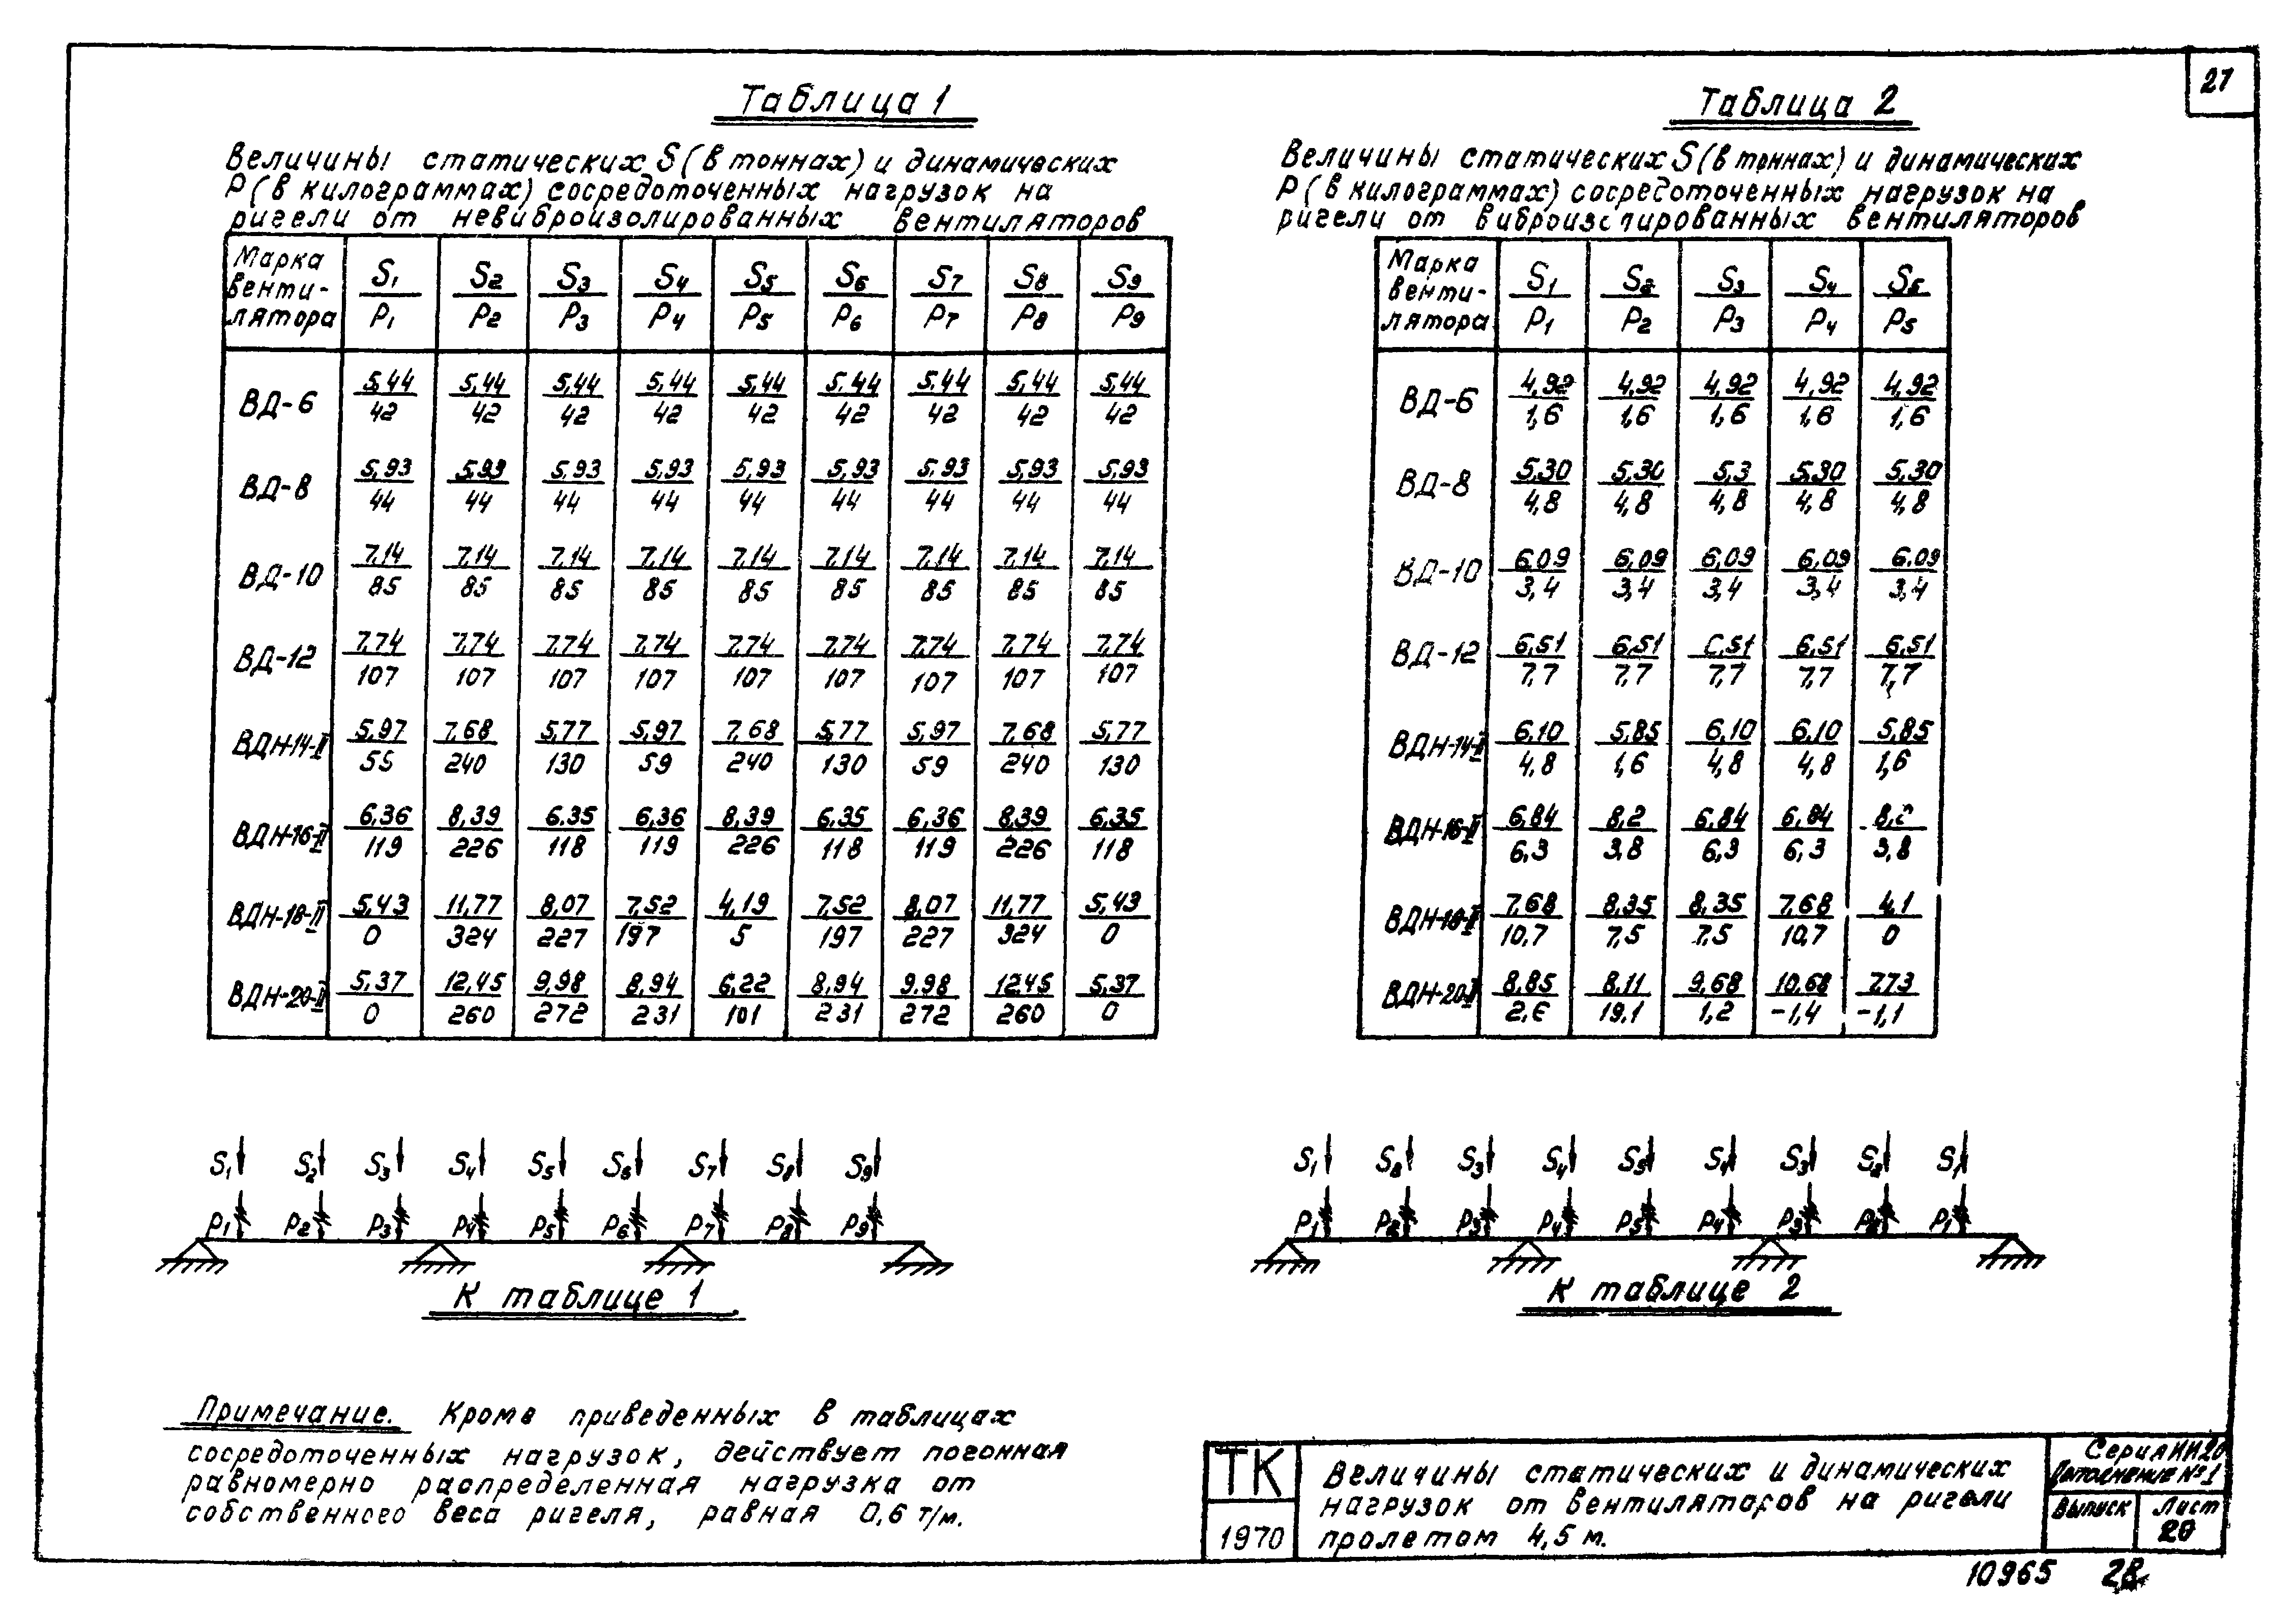 27
Таблица 1
Величины статических S (в тоннах) и динамических
P (в килограммах) сосредоточенных нагрузок на
ригели от невиброизолированных вентиляторов
Марка венти-лятора S1/P1 S2/P2 S3/P3 S4/P4 S5/P5 S6/P6 S7/P7 S8/P8 S9/P9
ВД-6 5,44/42 5,44/42 5,44/42 5,44/42 5,44/42 5,44/42 5,44/42 5,44/42 5,44/42
ВД-8 5,93/44 5,93/44 5,93/44 5,93/44 5,93/44 5,93/44 5,93/44 5,93/44 5,93/44
ВД-10 7,14/85 7,14/85 7,14/85 7,14/85 7,14/85 7,14/85 7,14/85 7,14/85 7,14/85
ВД-12 7,74/107 7,74/107 7,74/107 7,74/107 7,74/107 7,74/107 7,74/107 7,74/107 7,74/107
ВДН-14-II 5,97/59 7,68/240 5,77/130 5,97/59 7,68/240 5,77/130 5,97/59 7,68/240 5,77/130
ВДН-16-II 6,36/119 8,39/226 6,35/118 6,36/119 8,39/226 6,35/118 6,36/119 8,39/226 6,35/118
ВДН-18-II 5,43/0 11,77/324 8,07/227 7,52/197 4,19/5 7,52/197 8,07/227 11,77/324 5,43/0
ВДН-20-II 5,37/0 12,45/260 9,98/272 8,94/231 6,22/101 8,94/231 9,98/272 12,45/260 5,37/0
S1 S2 S3 S4 S5 S6 S7 S8 S9
P1 P2 P3 P4 P5 P6 P7 P8 P9
К таблице 1
Таблица 2
Величины статических S (в тоннах) и динамических
P (в килограммах) сосредоточенных нагрузок на
ригели от виброизолированных вентиляторов
Марка венти-лятора S1/P1 S2/P2 S3/P3 S4/P4 S5/P5
ВД-6 4,92/1,6 4,92/1,6 4,92/1,6 4,92/1,6 4,92/1,6
ВД-8 5,30/4,8 5,30/4,8 5,3/4,8 5,30/4,8 5,30/4,8
ВД-10 6,09/3,4 6,09/3,4 6,09/3,4 6,09/3,4 6,09/3,4
ВД-12 6,51/7,7 6,51/7,7 6,51/7,7 6,51/7,7 6,51/7,7
ВДН-14-II 6,10/4,8 5,85/1,6 6,10/4,8 6,10/4,8 5,85/1,6
ВДН-16-II 6,84/6,3 8,2/3,8 6,84/6,3 6,84/6,3 8,2/3,8
ВДН-18-II 7,68/10,7 8,35/7,5 8,35/7,5 7,68/10,7 4,1/0
ВДН-20-II 8,85/2,6 8,11/19,1 9,68/1,2 10,68/-1,4 7,73/-1,1
S1 S2 S3 S4 S5 S4 S3 S2 S1
P1 P2 P3 P4 P5 P4 P3 P2 P1
К таблице 2
Примечание. Кроме приведенных в таблицах
сосредоточенных нагрузок, действует погонная
равномерно распределенная нагрузка от
собственного веса ригеля, равная 0,6 т/м.
ТК
1970
Величины статических и динамических
нагрузок от вентиляторов на ригели
пролетом 4,5 м.
Серия ИИ20
Дополнение №1
Выпуск
Лист
20
10965 28